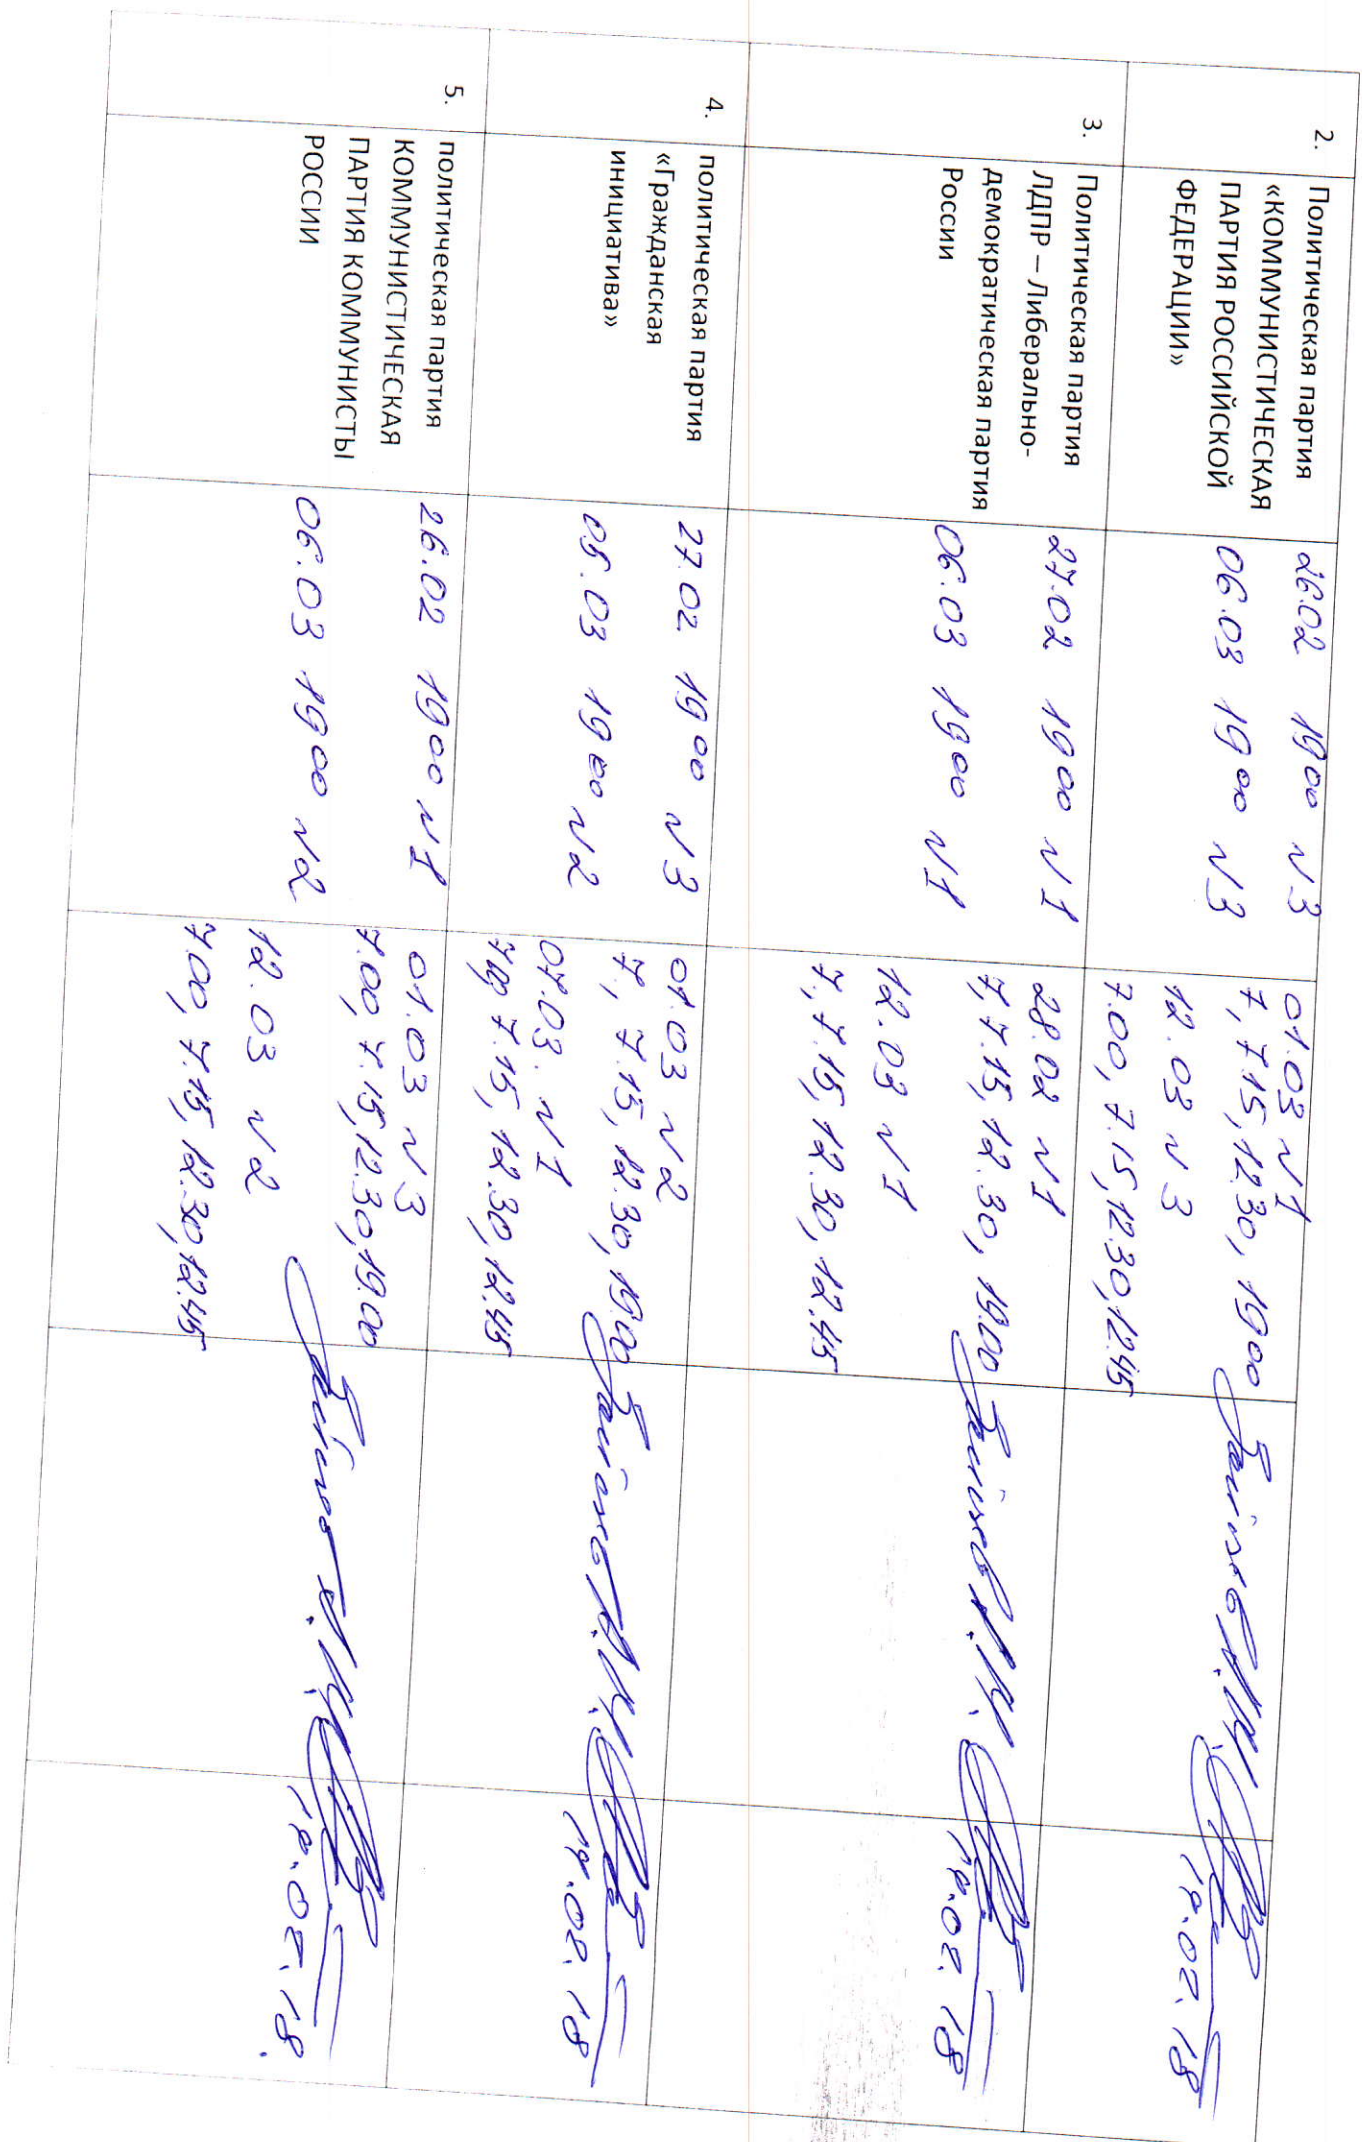 2.
Политическая партия
«КОММУНИСТИЧЕСКАЯ
ПАРТИЯ РОССИЙСКОЙ
ФЕДЕРАЦИИ»
26.02 19 00 N 3
06.03 19 00 N 3
01.03 N 1
7, 7.15, 12.30, 19 00
12.03 N 3
7.00, 7.15, 12.30, 12.45
3.
Политическая партия
ЛДПР – Либерально-
демократическая партия
России
27.02 19 00 N 1
06.03 19 00 N 1
28.02 N 1
7, 7.15, 12.30, 19.00
12.03 N 1
7, 7.15, 12.30, 12.45
4.
политическая партия
«Гражданская
инициатива»
27.02 19 00 N 3
05.03 19 00 N 2
01.03 N 2
7, 7.15, 12.30, 19.00
07.03. N 1
7.00 7.15, 12.30, 12.45
5.
политическая партия
КОММУНИСТИЧЕСКАЯ
ПАРТИЯ КОММУНИСТЫ
РОССИИ
26.02 19 00 N 1
06.03 19 00 N 2
01.03 N 3
7.00, 7.15, 12.30, 19.00
12.03 N 2
7.00, 7.15, 12.30, 12.45